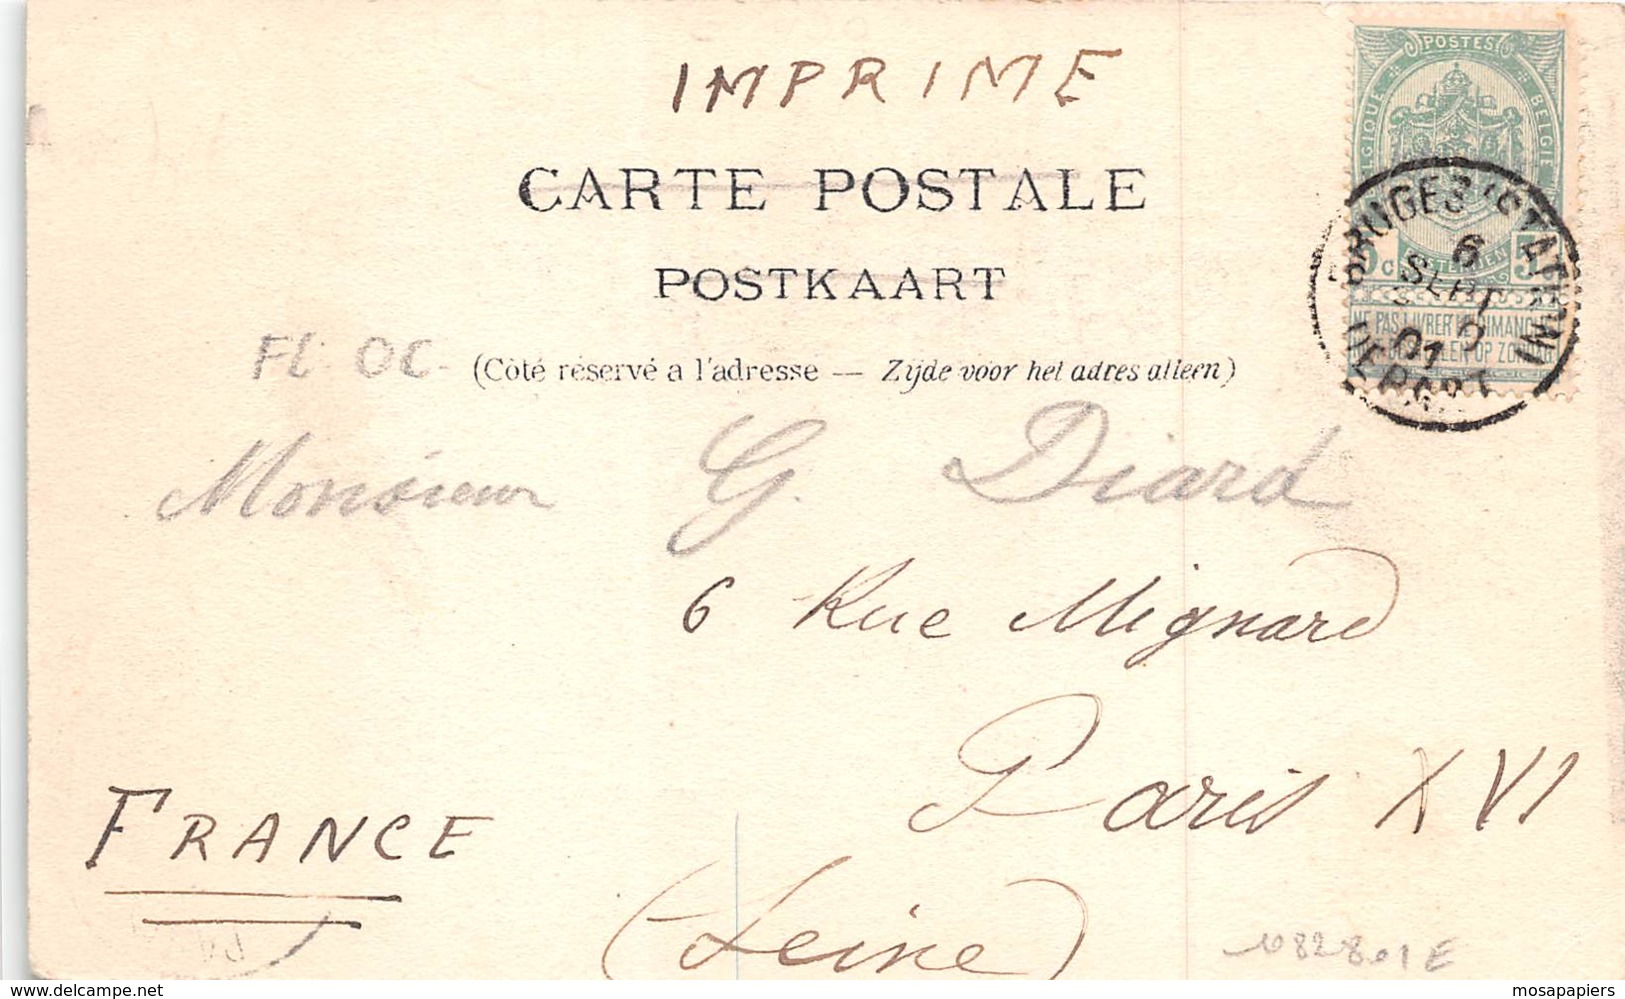 IMPRIME
CARTE POSTALE
POSTKAART
FL OC
(Côté réservé a l'adresse — Zijde voor het adres alleen)
POSTES
BELGIE
5c
NE PAS LIVRER LE DIMANCHE
BRUGES (STATION)
6
SEPT
01
DEPART
Monsieur G. Diard
6 Rue Mignard
Paris XVI
FRANCE
(Seine)
www.delcampe.net
mosapapiers